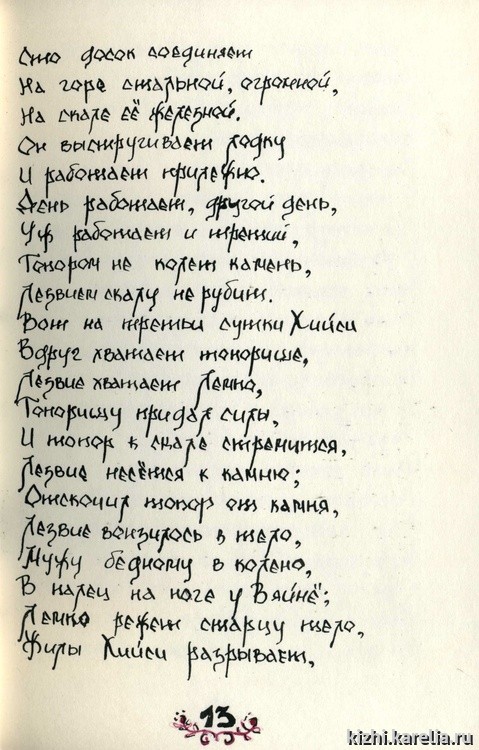 Сто досок соединяет
На горе стальной, огромной,
На скале её железной.
Он выстругивает лодку
И работает прилежно.
День работает, другой день,
Уж работает и третий,
Топором не колет камень,
Лезвием скалу не рубит.
Вот на третьи сутки Хийси
Вдруг хватает топорище,
Лезвие хватает Лемпо,
Топорищу придал силы,
И топор к скале стремится,
Лезвие несётся к камню;
Отскочил топор от камня,
Лезвие вонзилось в тело,
Мужу бедному в колено,
В палец на ноге у Вяйнё;
Лемпо режет старцу тело,
Жилы Хийси разрывает,
13
kizhi.karelia.ru